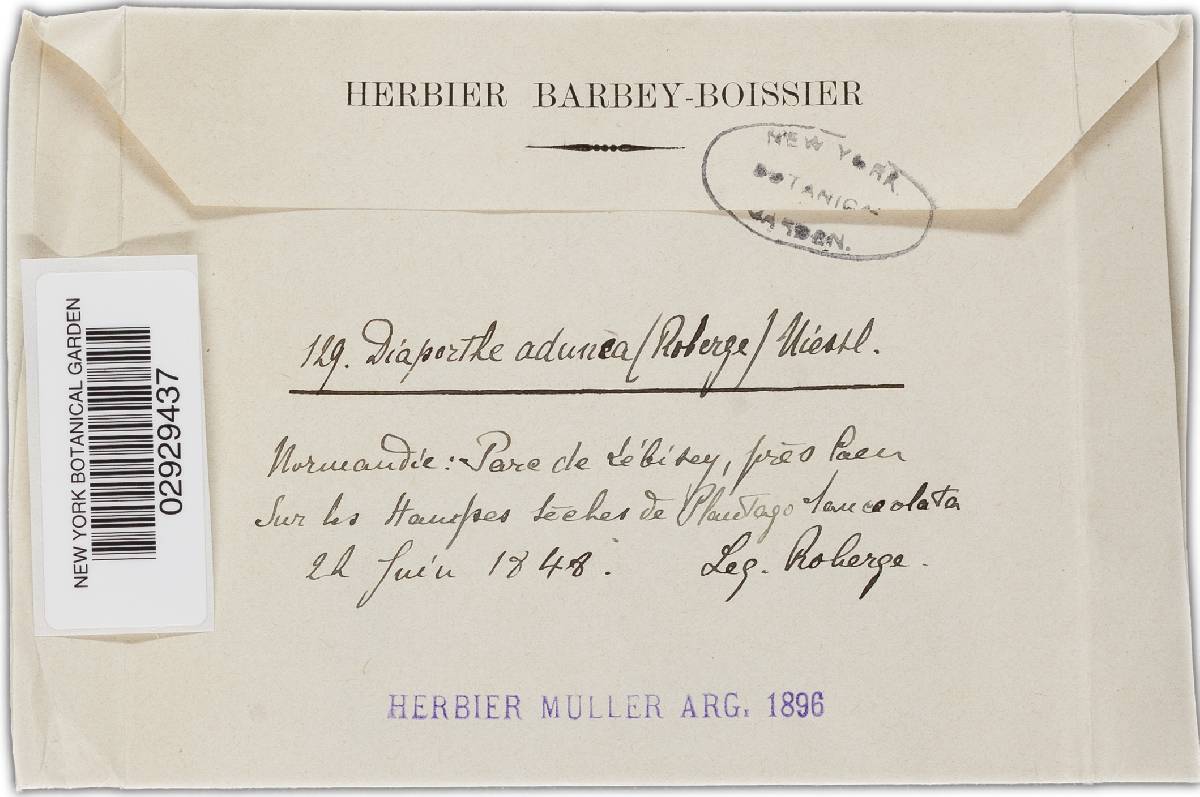 HERBIER BARBEY-BOISSIER
NEW YORK
BOTANICAL
GARDEN.
129. Diaporthe adunca (Roberge) Niessl.
Normandie: Parc de Lébisey, près Caen
Sur les Hampes sèches de Plantago lanceolata
24 Juin 1848. Leg. Roberge.
HERBIER MULLER ARG. 1896
NEW YORK BOTANICAL GARDEN
02929437